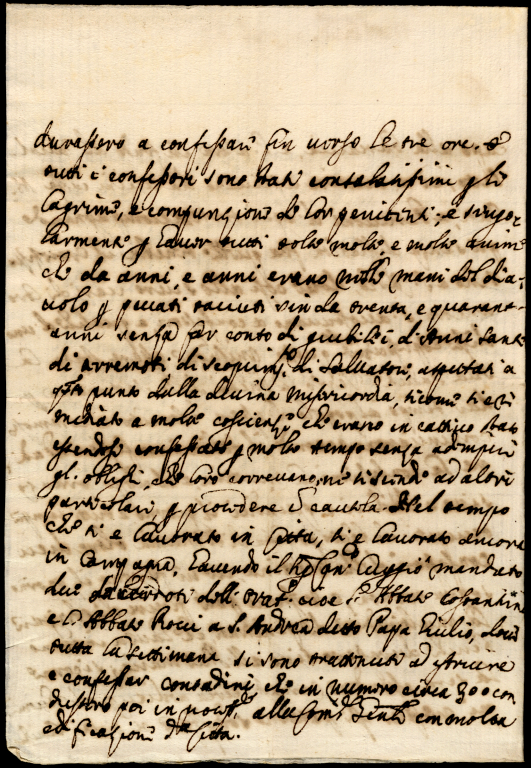 durassero a confessarsi sin verso le tre ore. e
tutti i confessori sono stati consolatissimi p le
lagrime, e compunzione de lor penitenti. e singo-
larmente p haver tutti tolte molte, e molte anime
che da anni, e anni erano nelle mani del dia-
volo p peccati taciuti sin da trenta, e quarant-
anni senza far conto di giubilei, di Anni santi
di terremoti, di Salvatore, aspettati a
questo punto dalla divina misericordia, sicome si è ri-
mediato a molte coscienze che erano in cattivo stato
essendosi confessate p molto tempo senza adempire
gl'oblighi, che loro correvano, ne si scende ad altri
particolari p procedere cautela. Nel tempo
che si è lavorato in Città, si è lavorato ancora
in Campagna, havendo il mandato
due sacerdoti dell' cioè Abbate Costantini
e Abbate Rocci a S. Andrea detto Papa Giulio, dove
tutta la settimana si sono trattenuti ad istruire
e confessar contadini che in numero circa 300 con-
 poi in alla Com. con molta
edificazione Città.